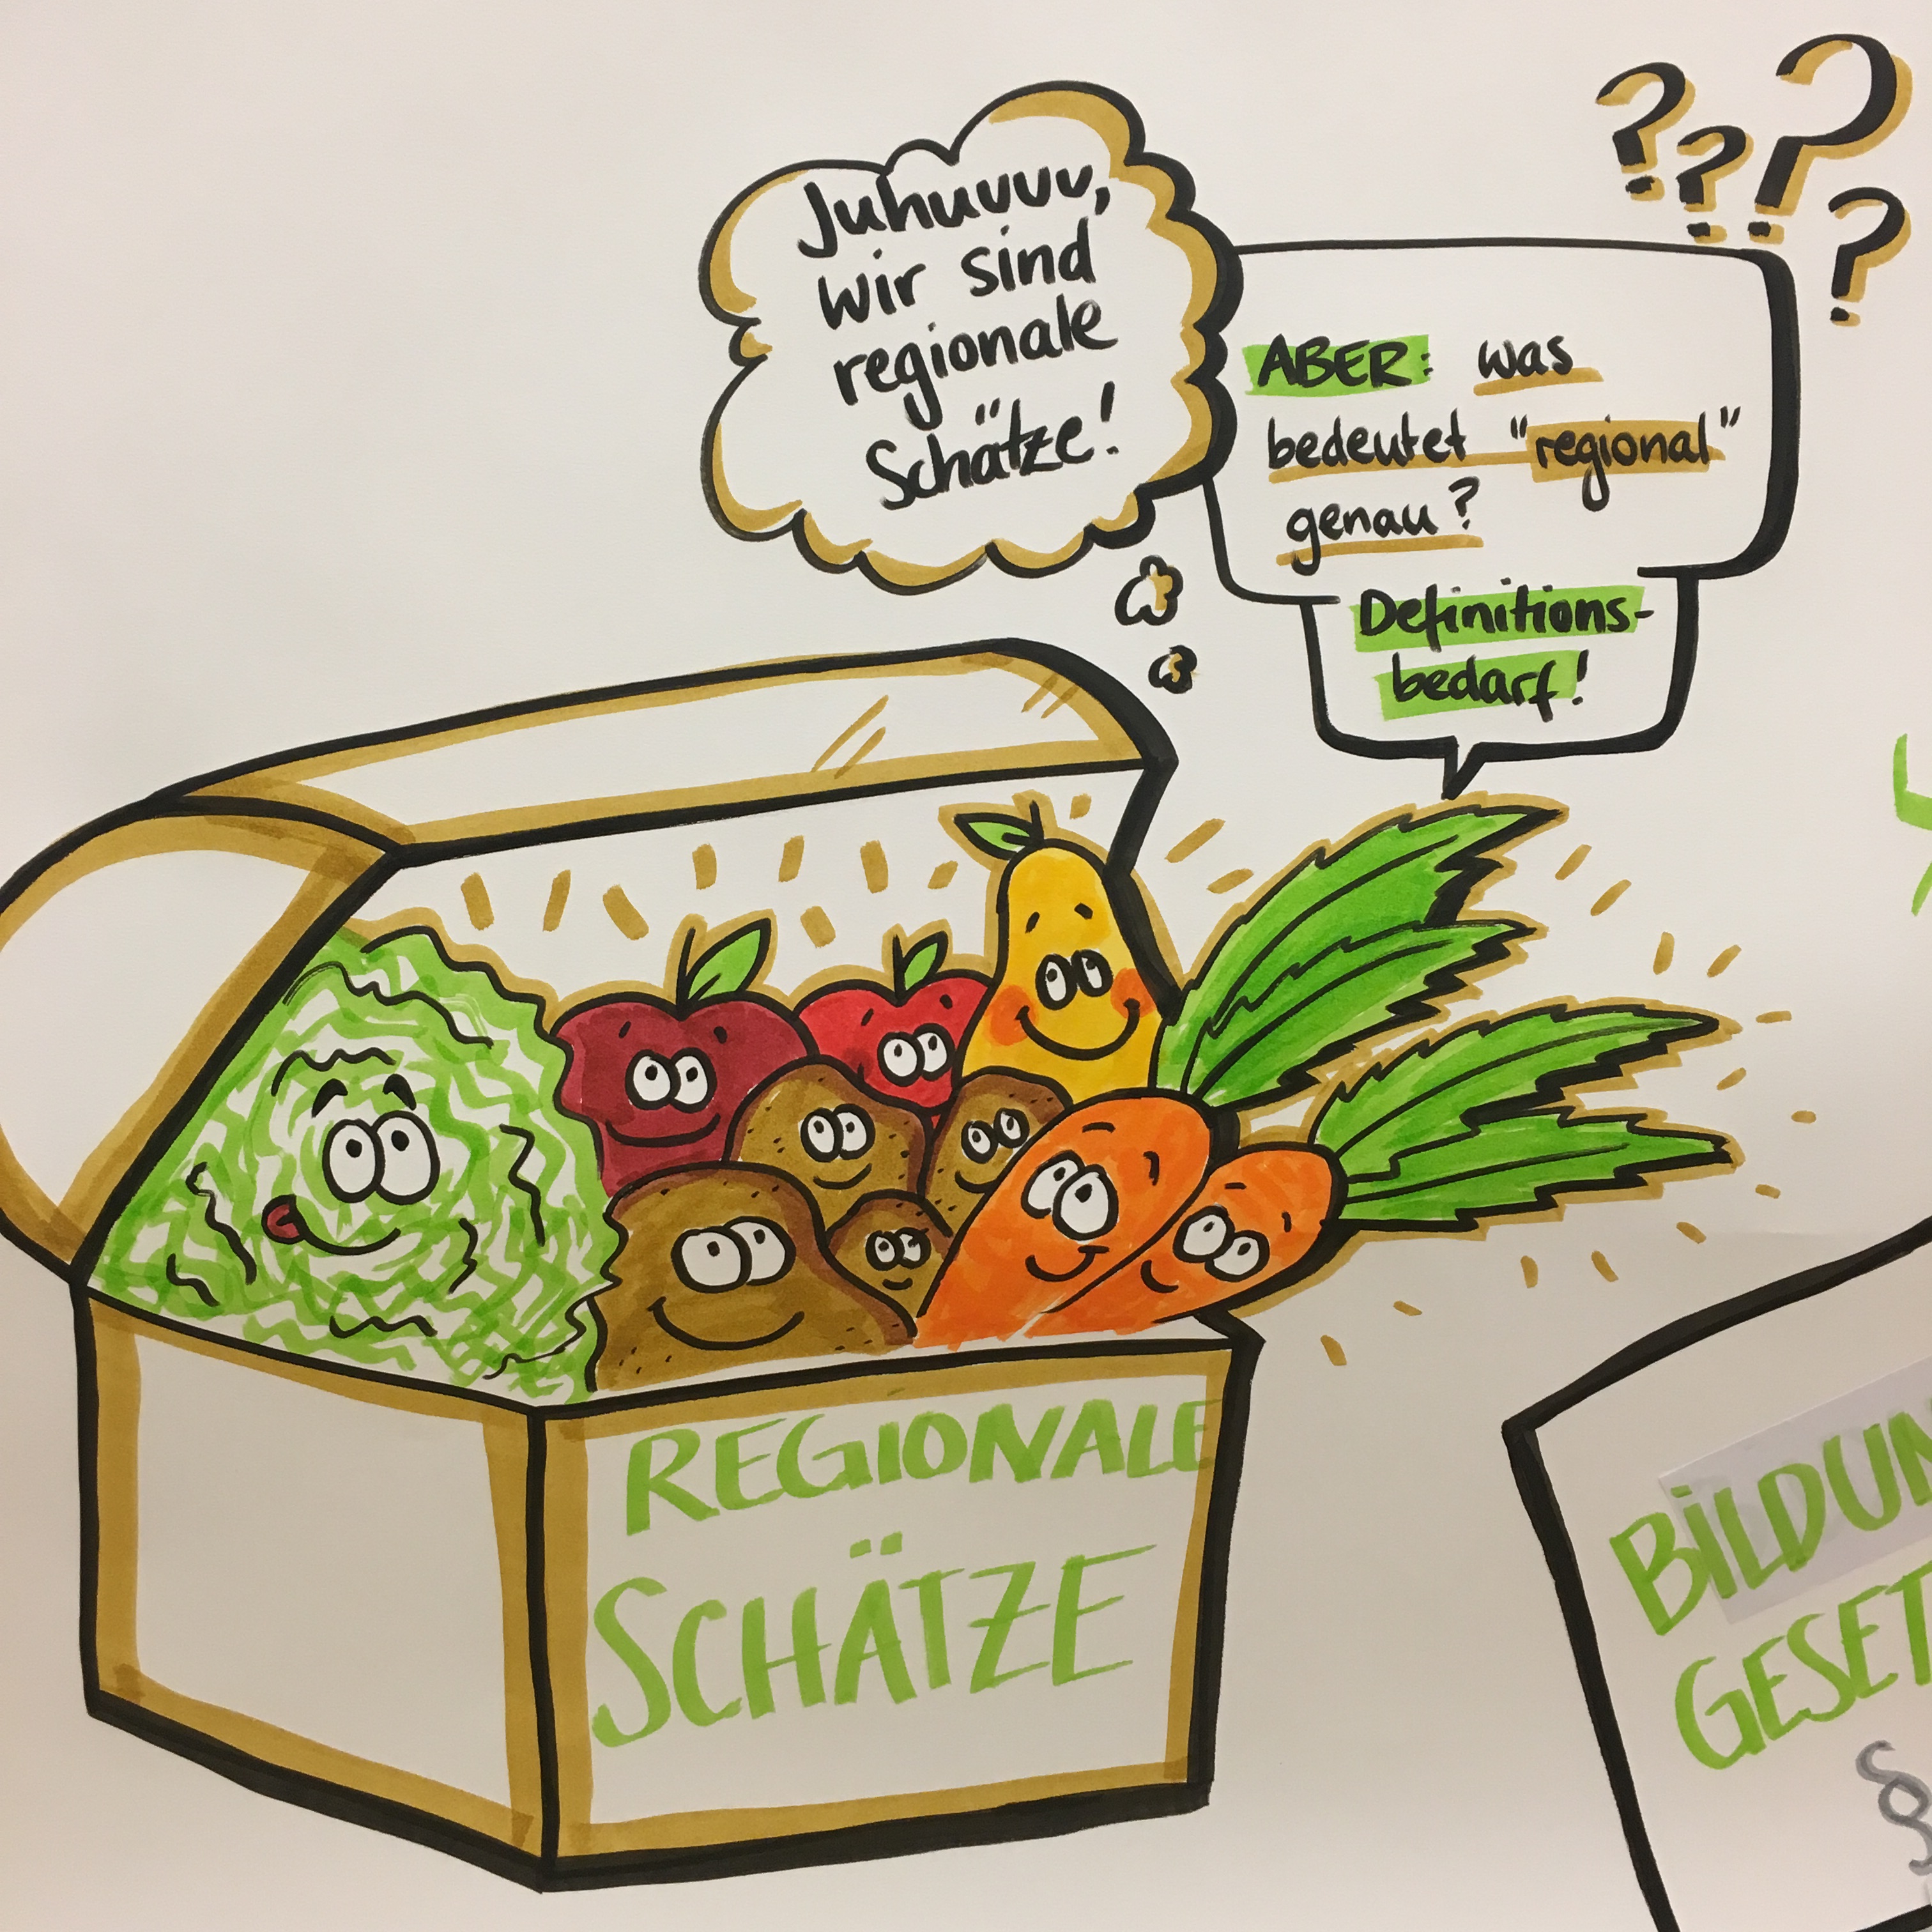 Juhuuuu,
wir sind
regionale
Schätze!
ABER: was
bedeutet "regional"
genau?
Definitions-
bedarf!
? ? ? ?
REGIONALE
SCHÄTZE
BILDUN
GESET
§